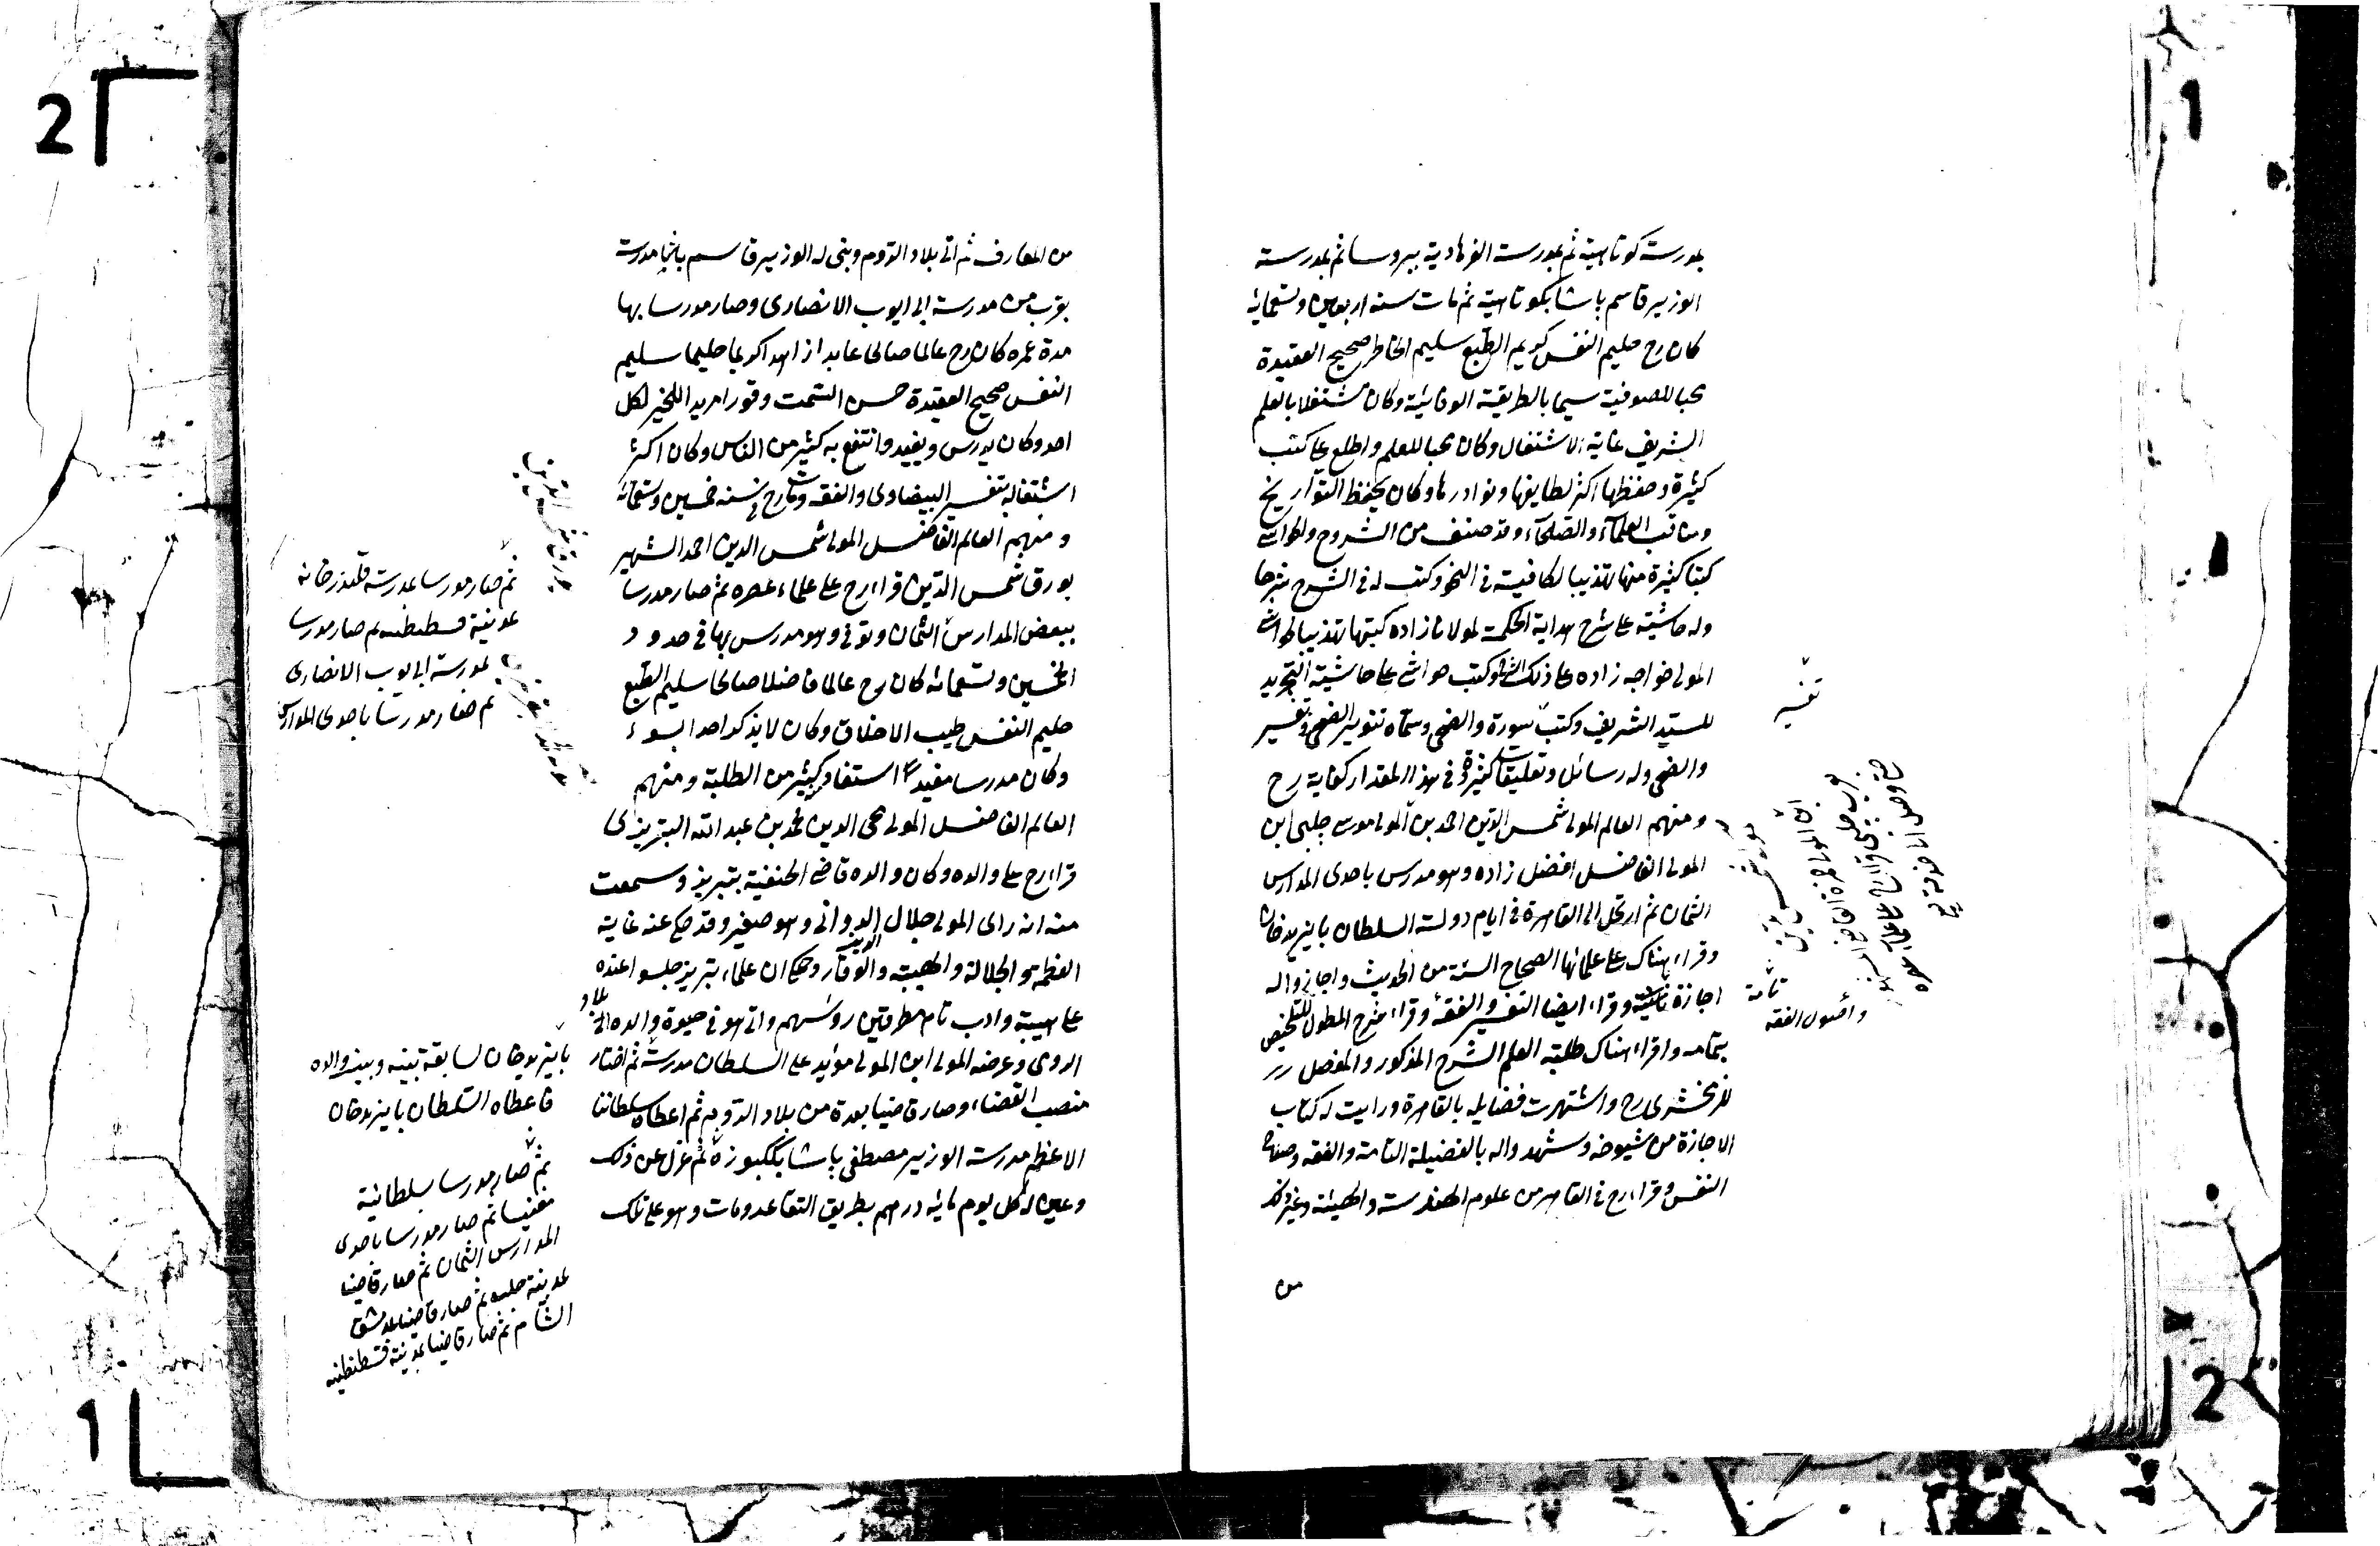 بمدرسة كوتاهية ثم بمدرسة الفرهادية ببروسا ثم بمدرسة
الوزير قاسم باشا بكوتاهية ثم مات سنه اربعين وتسعمائه
كان رح حليم النفس كريم الطبع سليم الخاطر صحيح العقيدة
محبا للصوفية سيما بالطريقة الوفائية وكان مشتغلا بالعلم
الشريف غاية الاشتغال وكان محبا للعلم واطلع على كتب
كثيرة وحفظها اكثر لطايفها ونوادرها وكان يحفظ التواريخ
ومناقب العلمآء والصلحآء وقد صنف من الشروح والحواشى
كتبا كثيرة منها تهذيب الكافية في النحو وكتب له في الشرح شرحا
وله حاشية على شرح هداية الحكمة لمولانا زاده كتبها تهذيبا لحواشى
المولى خواجه زاده على ذلك الشرح وكتب حواشى على حاشية التجريد
للسيد الشريف وكتب سورة والضحى وسماه تنوير الضحى وتفسير
والضحى وله رسائل وتعليقات كثيرة وفي هذا المقدار كفاية رح
ومنهم العالم المولى شمس الدين احمد بن المولى موسى چلبى ابن
المولى الفاضل افضل زاده وهو مدرس باحدى المدارس
الثمان ثم ارتحل الى القاهرة في ايام دولة السلطان بايزيد خان
وقراء هناك على علمائها الصحاح الستة من الحديث واجازوا له
اجازة وقراء ايضا التفسير والفقه وقراء شرح المطول للتلخيص
بتمامه واقراء هناك طلبة العلم الشرح المذكور والمفصل
للزمخشرى رح واشتهرت فضايله بالقاهرة ورايت له كتاب
الاجازة من شيوخه وشهدوا له بالفضيلة التامة والفقه وصفاء
النفس وقراء رح في القاهر من علوم الهندسة والهيئة وغير ذلك
من
تفسير
تامة
واصول الفقه
من المعارف ثم اتى بلاد الروم وبنى له الوزير قاسم باشا مدرسة
بقرب من مدرسة ابى ايوب الانصارى وصار مدرسا بها
مدة عمره كان رح عالما صالحا عابدا زاهدا كريما حليما سليم
النفس صحيح العقيدة حسن السمت وقورا مريدا للخير لكل
احد وكان يدرس ويفيد وانتفع به كثير من الناس وكان اكثر
اشتغاله بتفسير البيضاوى والفقه ومات رح في سنه خمسين وتسعمائه
ومنهم العالم الفاضل المولى شمس الدين احمد الشهير
بورق شمس الدين قراء رح على علماء عصره ثم صار مدرسا
ببعض المدارس الثمان وتوفى وهو مدرس بها في حدود
الخمسين وتسعمائه كان رح عالما فاضلا صالحا سليم الطبع
حليم النفس طيب الاخلاق وكان لا يذكر احدا بسوء
وكان مدرسا مفيدا استفاد كثير من الطلبة ومنهم
العالم الفاضل المولى محى الدين محمد بن عبد الله التبريزى
قراء رح على والده وكان والده قاضى الحنفية بتبريز وسمعت
منه انه راى المولى جلال الدوانى وهو صغير وقد حكى عنه غاية
الدين
العظمة والجلالة والهيبة والوقار وحكى ان علماء تبريز جلسوا عنده
على هيبة وادب تام مطرقين رؤسهم واتى هو في حيوة والده الى بلاد
الروم وعرضه المولى ابن المولى مؤيد على السلطان مدرسة ثم اختار
منصب القضاء وصار قاضيا بعدة من بلاد الروم ثم اعطاه سلطاننا
الاعظم مدرسة الوزير مصطفى باشا بككبوزه ثم عزل عن ذلك
وعين له كل يوم مائة درهم بطريق التقاعد ومات وهو على تلك
ثم صار مدرسا بمدرسة قلندرخانه
بمدينة قسطنطنيه ثم صار مدرسا
بمدرسة ابى ايوب الانصارى
ثم صار مدرسا باحدى المدارس
بايزيد خان لسابقة بينه وبين والده
فاعطاه السلطان بايزيد خان
ثم صار مدرسا بسلطانية
مغنيسا ثم صار مدرسا باحدى
المدارس الثمان ثم صار قاضيا
بمدينة حلب ثم صار قاضيا بدمشق
الشام ثم صار قاضيا بمدينة قسطنطنيه
2
1
1
2